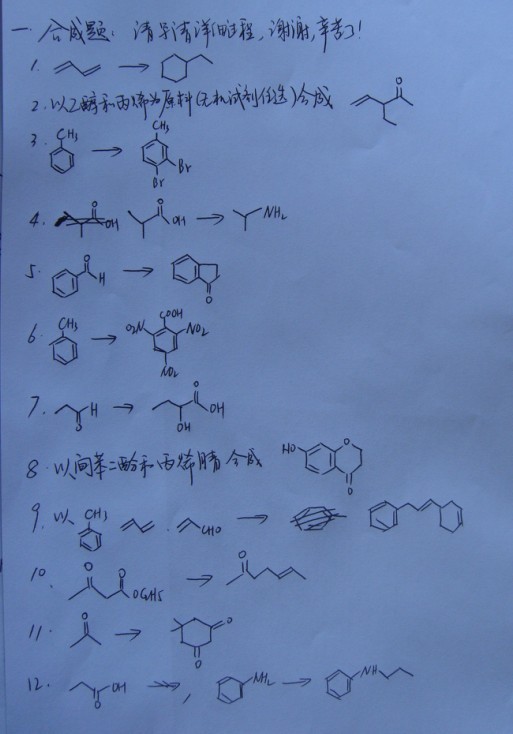 一 合成题: 请写清详细过程,谢谢,辛苦了!
1.
2. 以乙醇和丙烯为原料(无机试剂任选)合成 O
3. CH3 CH3 Br Br
4. O OH O OH NH2
5. O H O
6. CH3 O2N COOH NO2 NO2
7. H O O OH OH
8. 以间苯二酚和丙烯腈合成 HO O O
9. 以 CH3 CHO
10. O O OC2H5 O
11. O O O
12. OH O , NH2 NH